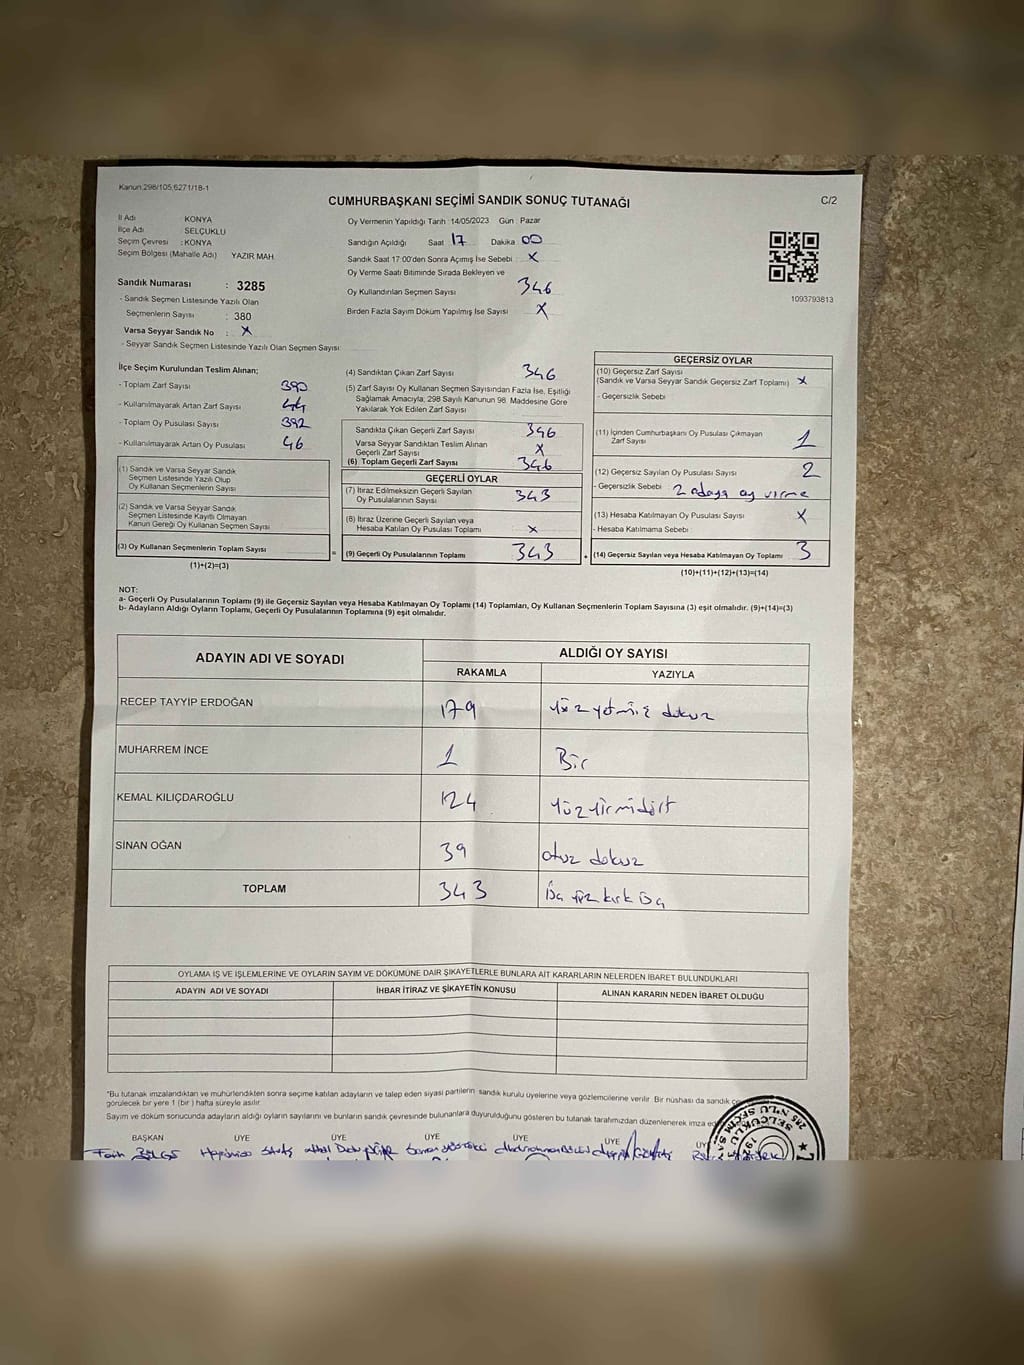 Kanun.298/105,6271/18-1
CUMHURBAŞKANI SEÇİMİ SANDIK SONUÇ TUTANAĞI
C/2
İl Adı KONYA
İlçe Adı SELÇUKLU
Seçim Çevresi : KONYA
Seçim Bölgesi (Mahalle Adı) YAZIR MAH.
Oy Vermenin Yapıldığı Tarih :14/05/2023 Gün : Pazar
Sandığın Açıldığı Saat 17 Dakika 00
Sandık Saat 17:00'den Sonra Açımış İse Sebebi : X
Oy Verme Saati Bitiminde Sırada Bekleyen ve
Oy Kullandırılan Seçmen Sayısı 346
Birden Fazla Sayım Döküm Yapılmış İse Sayısı X
1093793813
Sandık Numarası : 3285
- Sandık Seçmen Listesinde Yazılı Olan
Seçmenlerin Sayısı : 380
Varsa Seyyar Sandık No : X
- Seyyar Sandık Seçmen Listesinde Yazılı Olan Seçmen Sayısı:
İlçe Seçim Kurulundan Teslim Alınan;
- Toplam Zarf Sayısı 390
- Kullanılmayarak Artan Zarf Sayısı 44
- Toplam Oy Pusulası Sayısı 392
- Kullanılmayarak Artan Oy Pusulası 46
(1) Sandık ve Varsa Seyyar Sandık
Seçmen Listesinde Yazılı Olup
Oy Kullanan Seçmenlerin Sayısı
(2) Sandık ve Varsa Seyyar Sandık
Seçmen Listesinde Kayıtlı Olmayan
Kanun Gereği Oy Kullanan Seçmen Sayısı
(3) Oy Kullanan Seçmenlerin Toplam Sayısı
(1)+(2)=(3)
(4) Sandıktan Çıkan Zarf Sayısı 346
(5) Zarf Sayısı Oy Kullanan Seçmen Sayısından Fazla İse, Eşitliği
Sağlamak Amacıyla; 298 Sayılı Kanunun 98. Maddesine Göre
Yakılarak Yok Edilen Zarf Sayısı
Sandıkta Çıkan Geçerli Zarf Sayısı 346
Varsa Seyyar Sandıktan Teslim Alınan
Geçerli Zarf Sayısı X
(6) Toplam Geçerli Zarf Sayısı 346
GEÇERLİ OYLAR
(7) İtiraz Edilmeksizin Geçerli Sayılan
Oy Pusulalarının Sayısı 343
(8) İtiraz Üzerine Geçerli Sayılan veya
Hesaba Katılan Oy Pusulası Toplamı X
= (9) Geçerli Oy Pusulalarının Toplamı 343
GEÇERSİZ OYLAR
(10) Geçersiz Zarf Sayısı
(Sandık ve Varsa Seyyar Sandık Geçersiz Zarf Toplamı) X
- Geçersizlik Sebebi :
(11) İçinden Cumhurbaşkanı Oy Pusulası Çıkmayan
Zarf Sayısı 1
(12) Geçersiz Sayılan Oy Pusulası Sayısı 2
- Geçersizlik Sebebi : 2 adaya oy verme
(13) Hesaba Katılmayan Oy Pusulası Sayısı X
- Hesaba Katılmama Sebebi :
+ (14) Geçersiz Sayılan veya Hesaba Katılmayan Oy Toplamı 3
(10)+(11)+(12)+(13)=(14)
NOT:
a- Geçerli Oy Pusulalarının Toplamı (9) ile Geçersiz Sayılan veya Hesaba Katılmayan Oy Toplamı (14) Toplamları, Oy Kullanan Seçmenlerin Toplam Sayısına (3) eşit olmalıdır. (9)+(14)=(3)
b- Adayların Aldığı Oyların Toplamı, Geçerli Oy Pusulalarının Toplamına (9) eşit olmalıdır.
ADAYIN ADI VE SOYADI ALDIĞI OY SAYISI
RAKAMLA YAZIYLA
RECEP TAYYİP ERDOĞAN 179 Yüz yetmiş dokuz
MUHARREM İNCE 1 Bir
KEMAL KILIÇDAROĞLU 124 Yüzyirmidört
SİNAN OĞAN 39 otuz dokuz
TOPLAM 343 Üç yüz kırk üç
OYLAMA İŞ VE İŞLEMLERİNE VE OYLARIN SAYIM VE DÖKÜMÜNE DAİR ŞİKAYETLERLE BUNLARA AİT KARARLARIN NELERDEN İBARET BULUNDUKLARI
ADAYIN ADI VE SOYADI İHBAR İTİRAZ VE ŞİKAYETİN KONUSU ALINAN KARARIN NEDEN İBARET OLDUĞU
*Bu tutanak imzalandıktan ve mühürlendikten sonra seçime katılan adayların ve talep eden siyasi partilerin sandık kurulu üyelerine veya gözlemcilerine verilir. Bir nüshası da sandık
görülecek bir yere 1 (bir) hafta süreyle asılır.
Sayım ve döküm sonucunda adayların aldığı oyların sayılarını ve bunların sandık çevresinde bulunanlara duyurulduğunu gösteren bu tutanak tarafımızdan düzenlenerek imza
BAŞKAN ÜYE ÜYE ÜYE ÜYE ÜYE
Fatih BİLGE